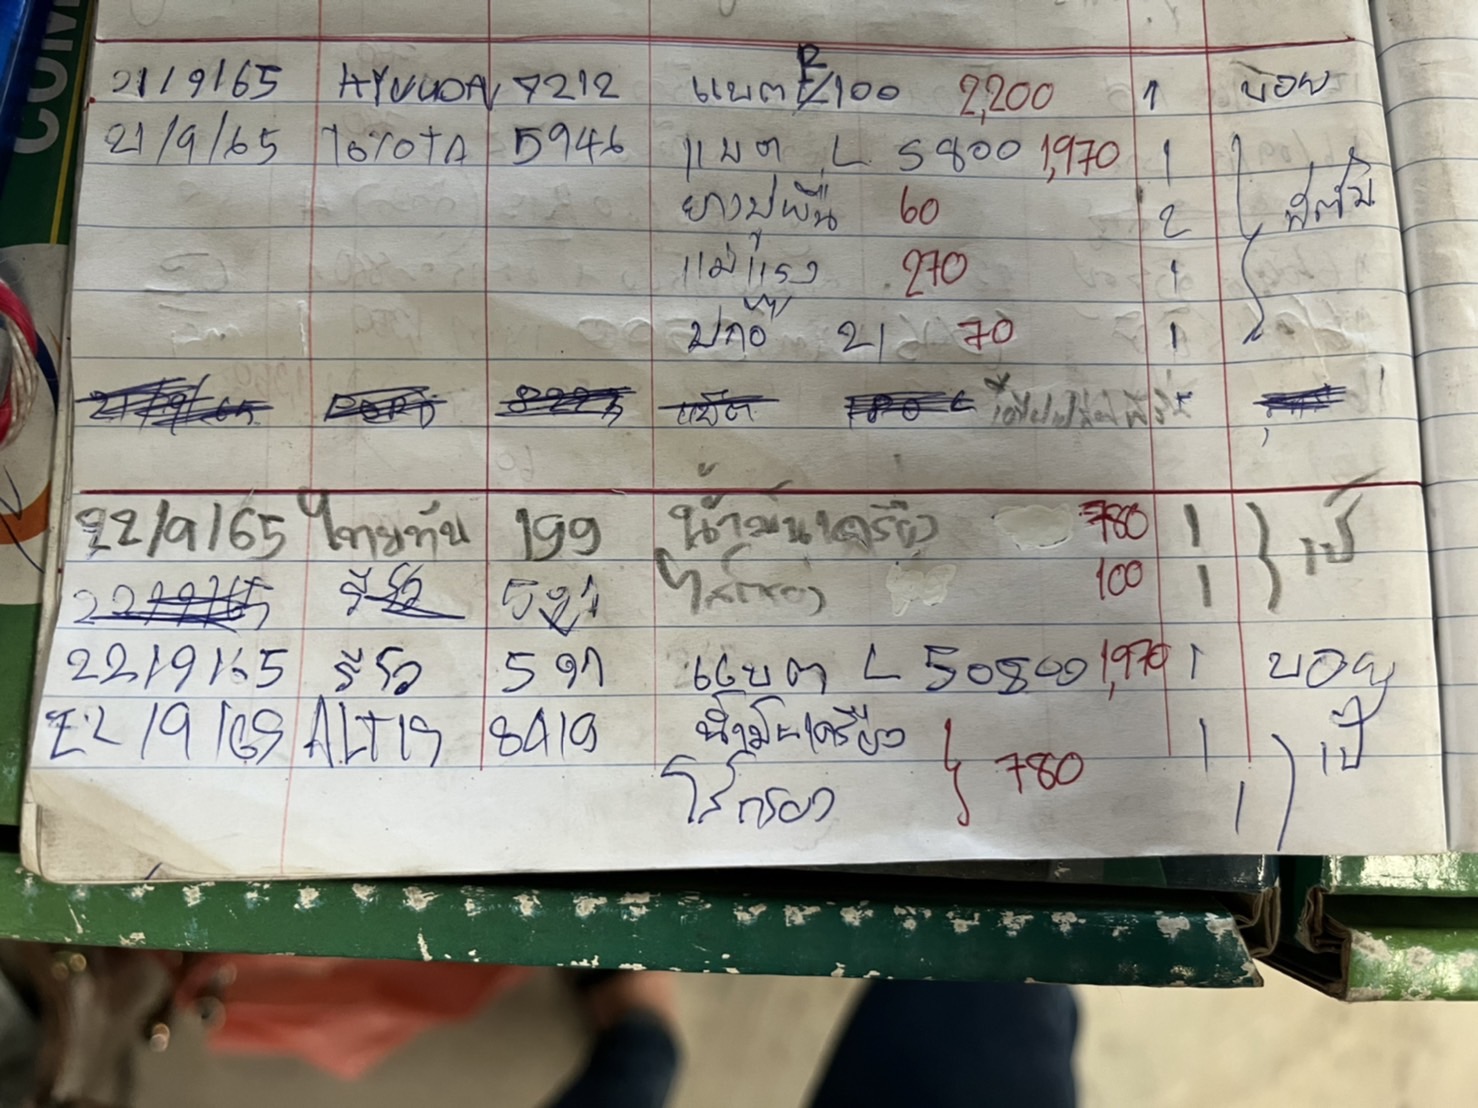 COM
21/9/65 HYUNDAI 7212 แบต R/100 2,200 1 บอย
21/9/65 TOYOTA 5946 แบต L 5800 1,970 1
ยางปูพื้น 60 2
แม่แรง 270 1
ปกอ๊ 21 70 1
22/9/65 ไทยทัน 199 น้ำมันเครื่อง 780 1 เป้
ไส้กรอง 100 1
22/9/65 รีโว่
22/9/65 รีโว 597 แบต L 50800 1,970 1 บอย
22/9/65 ALTIS 8419 น้ำมันเครื่อง 1 เป้
ไส้กรอง 780 1